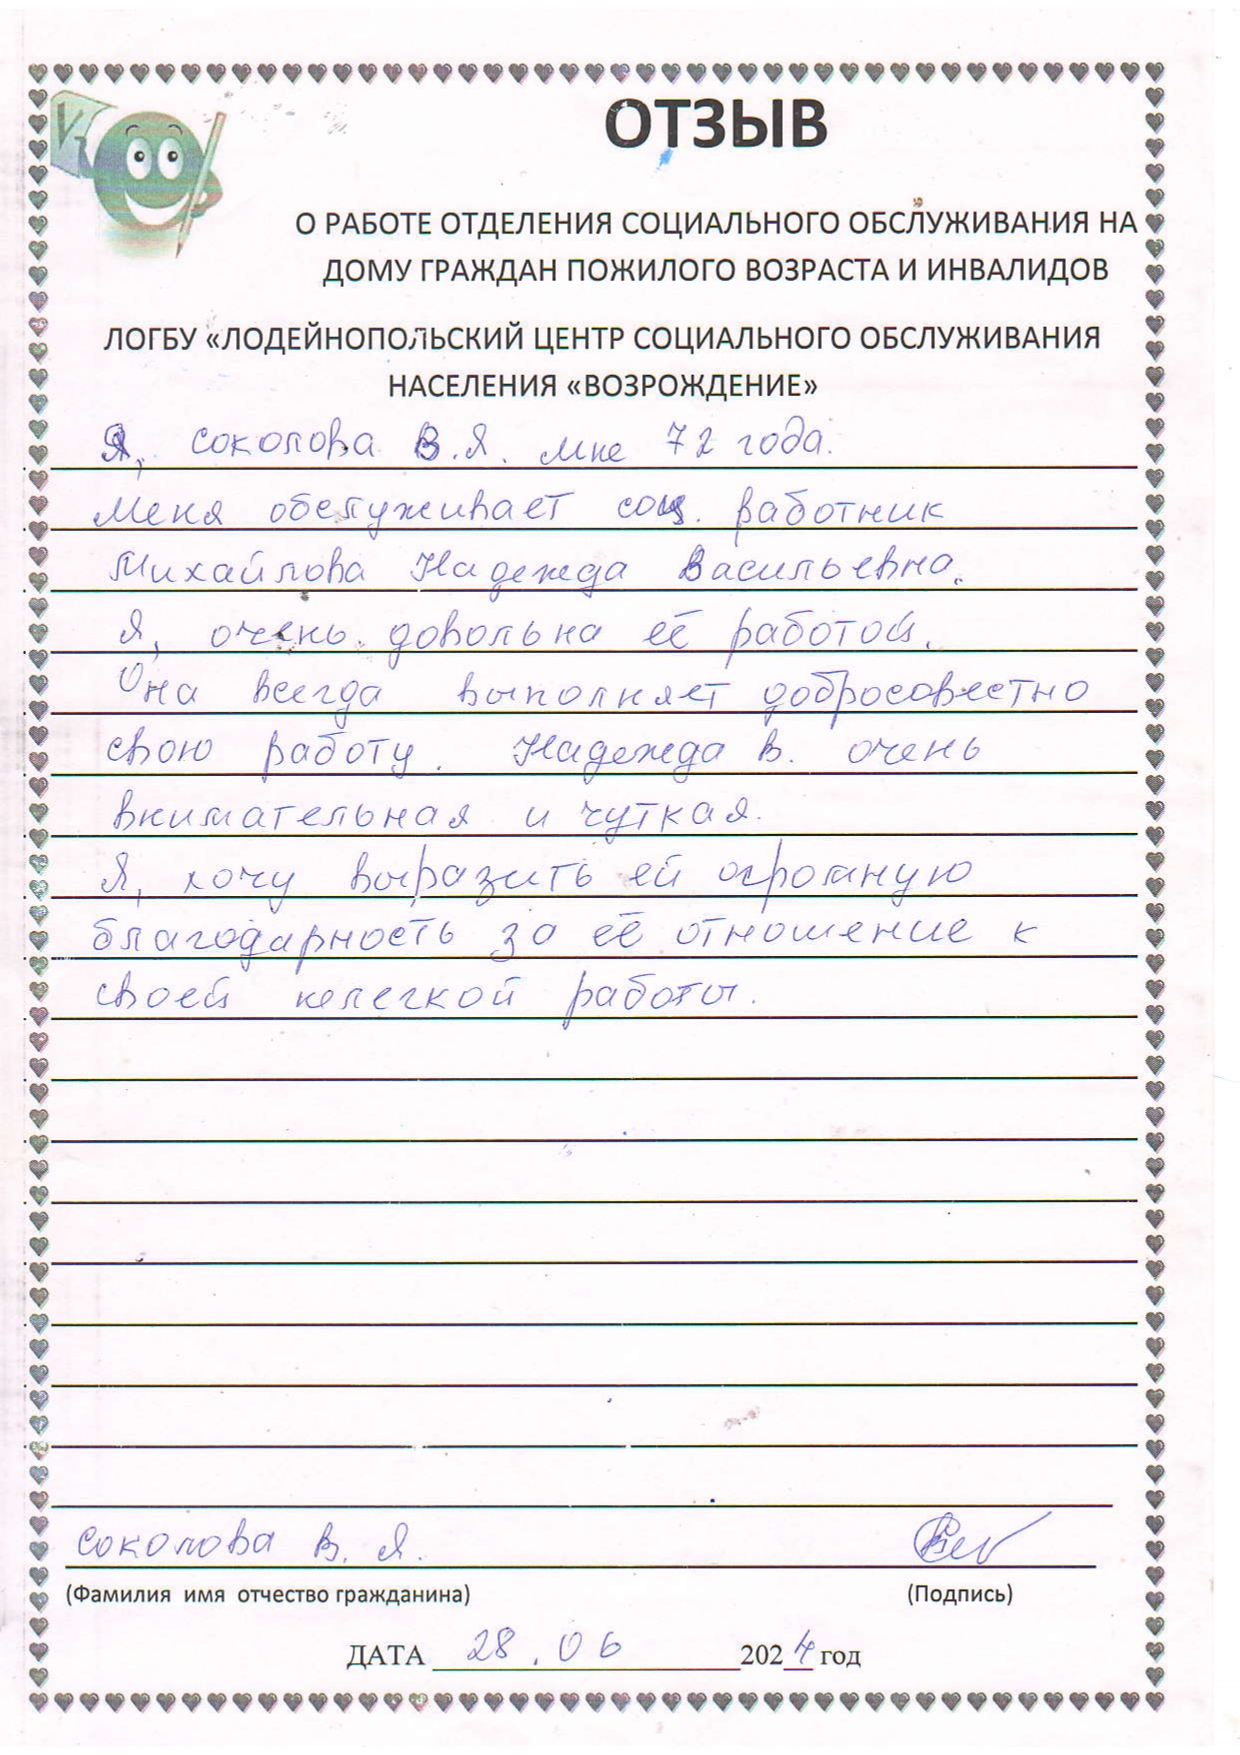 ОТЗЫВ
О РАБОТЕ ОТДЕЛЕНИЯ СОЦИАЛЬНОГО ОБСЛУЖИВАНИЯ НА
ДОМУ ГРАЖДАН ПОЖИЛОГО ВОЗРАСТА И ИНВАЛИДОВ
ЛОГБУ «ЛОДЕЙНОПОЛЬСКИЙ ЦЕНТР СОЦИАЛЬНОГО ОБСЛУЖИВАНИЯ
НАСЕЛЕНИЯ «ВОЗРОЖДЕНИЕ»
Я, соколова В.Я. мне 72 года.
Меня обслуживает соц. работник
Михайлова Надежда Васильевна.
Я, очень довольна её работой.
Она всегда выполняет добросовестно
свою работу. Надежда В. очень
внимательная и чуткая.
Я, хочу выразить ей огромную
благодарность за её отношение к
своей нелегкой работы.
соколова В. Я.
(Фамилия имя отчество гражданина) (Подпись)
ДАТА 28.06 2024 год